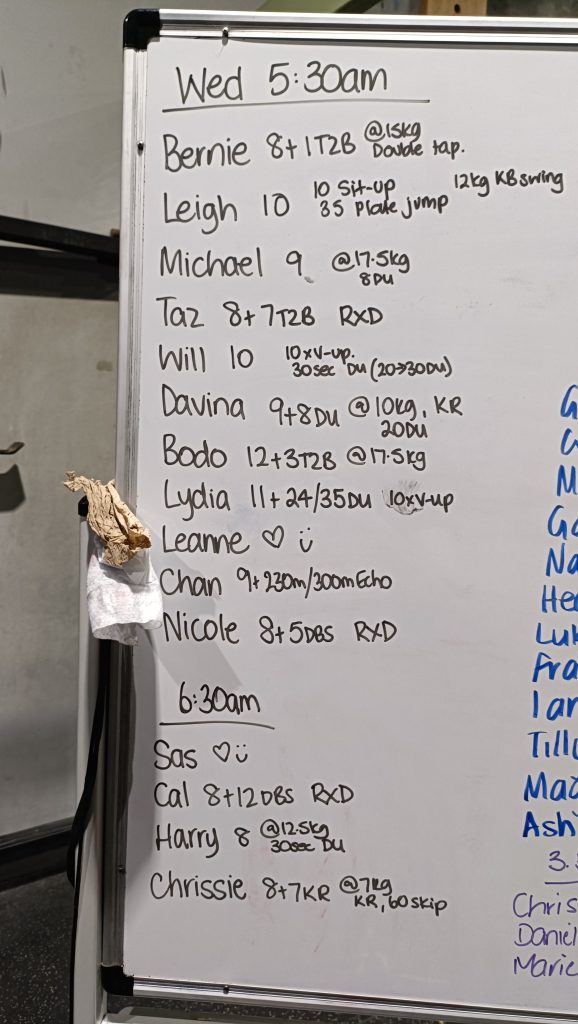 Wed 5:30am
Bernie 8+1T2B @15kg
Double tap.
Leigh 10 10 Sit-up 12kg KB swing
35 Plate jump
Michael 9 @17.5kg
8DU
Taz 8+7T2B RXD
Will 10 10xV-up.
30sec DU (20→30DU)
Davina 9+8DU @10kg, KR
20DU
Bodo 12+3T2B @17.5kg
Lydia 11+24/35DU 10xV-up
Leanne ♡ ü
Chan 9+230m/300m Echo
Nicole 8+5DBS RXD
6:30am
Sas ♡ü
Cal 8+12DBS RXD
Harry 8 @12.5kg
30sec DU
Chrissie 8+7KR @7kg
KR, 60 skip
G
M
Ga
Na
He
Luk
Fra
Ian
Tilly
Ash
3.
Chris
Daniel
Marie